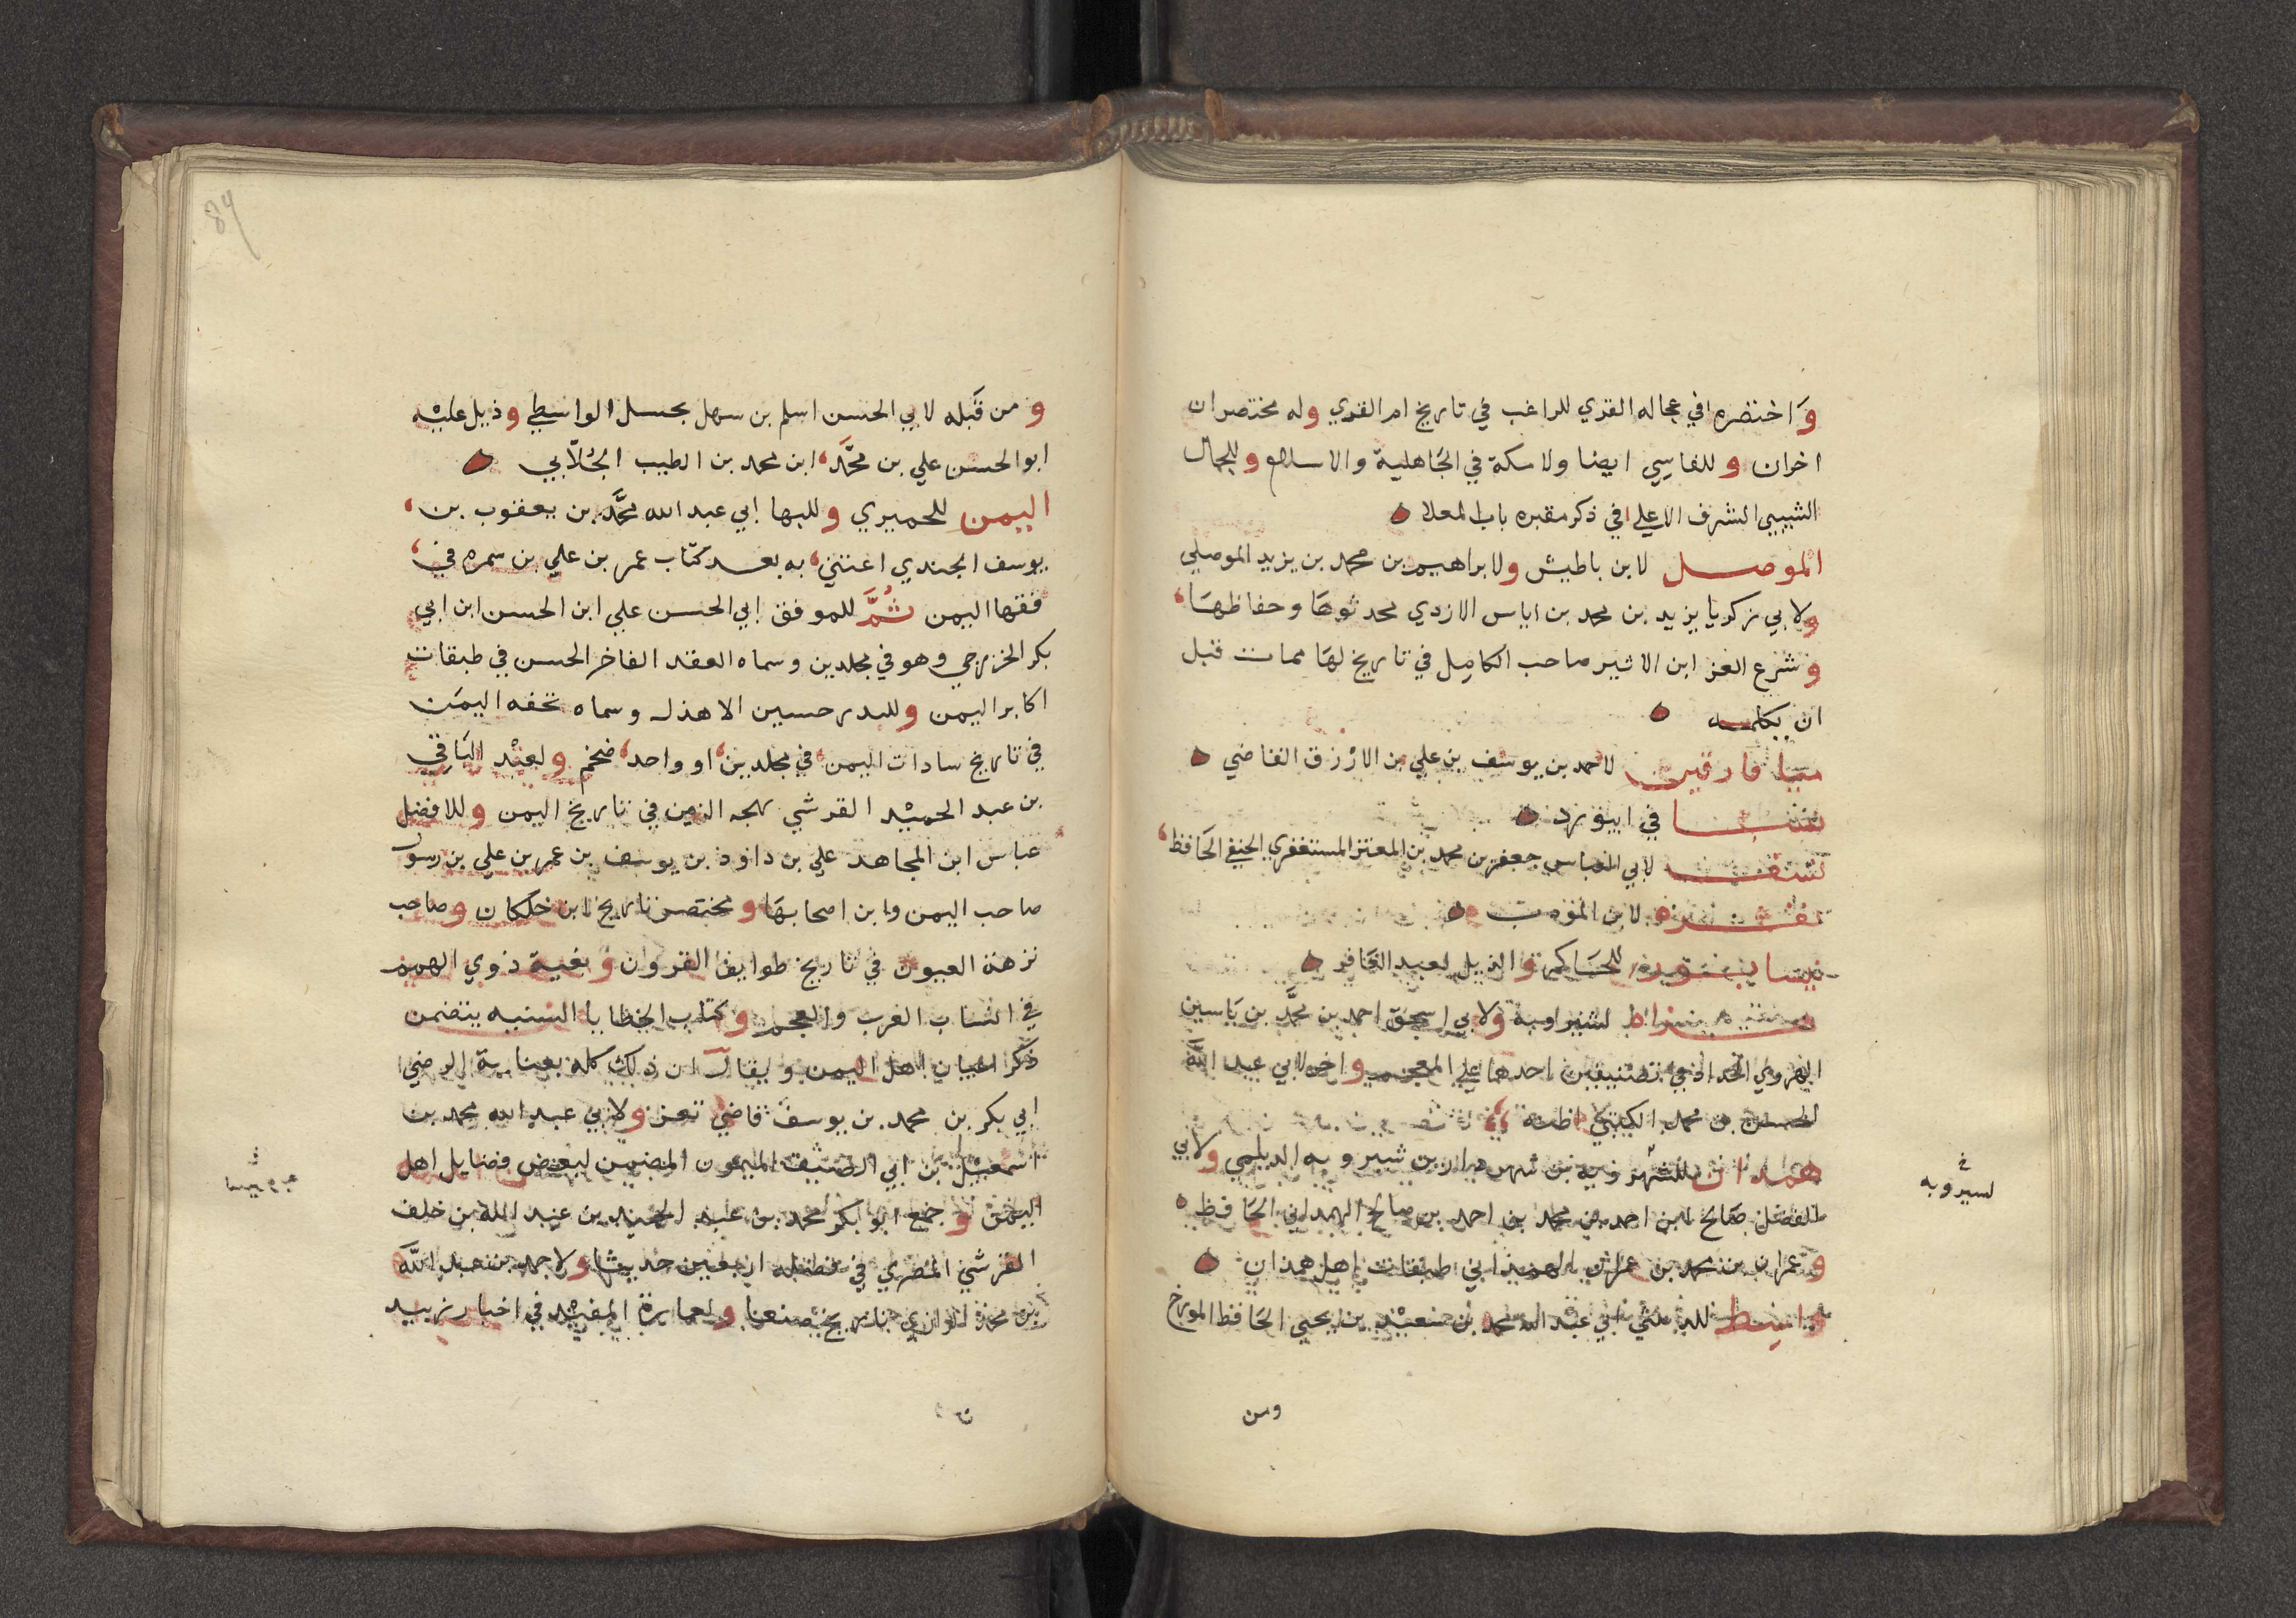 واختصره في عجاله القري للراغب في تاريخ ام القري وله مختصران
اخران وللفاسي ايضا ولاة مكة في الجاهلية والاسلام وللجمال
الشيبي الشرف الاعلي في ذكر مقبره باب المعلا
الموصل لابن باطيش ولابراهيم بن محمد بن يزيد الموصلي
ولابي زكريا يزيد بن محمد بن اياس الازدي محدثوها وحفاظها
وشرع العز ابن الاثير صاحب الكامل في تاريخ لها مات قبل
ان يكلمه
ميا فارقين لاحمد بن يوسف بن علي بن الازرق الفاضي
في ابيورد
لابي العباس جعفر بن محمد بن المعتز المستغفري الحنفي الحافظ
لابن المودب
نيسابور للحاكم والذيل لعبد الغافر
لشيرامية ولابي اسحق احمد بن محمد بن ياسين
الهروي الحداد في تصنيفين احدهما علي المعجم واخر لابي عبد الله
الحسين بن محمد الكتبي اظنه
همدان لشهردار بن شيرويه الديلمي ولابي
الفضل صالح ابن احمد بن محمد بن احمد بن صالح الهمداني الحافظ
وعمران بن محمد بن عمران الهمداني طبقات اهل همذان
واسط للدبيثي ابي عبد الله محمد بن سعيد بن يحيي الحافظ المورخ
لسيرويه
ومن
ومن قبله لابي الحسن اسلم بن سهل بحسل الواسطي وذيل عليه
ابو الحسن علي بن محمد ابن محمد بن الطيب الجلابي
اليمن للحميري وللبها ابي عبد الله محمد بن يعقوب بن
يوسف الجندي اعتني به بعد كتاب عمر بن علي بن سمره في
فقها اليمن ثم للموفق ابي الحسن علي ابن الحسن ابن ابي
بكر الخزرجي وهو في مجلدين وسماه العقد الفاخر الحسن في طبقات
اكابر اليمن وللبدر حسين الاهدل وسماه تحفه اليمن
في تاريخ سادات اليمن في مجلدين او واحد ضخم ولعبد الباقي
بن عبد الحميد القرشي بهجه الزمن في تاريخ اليمن وللافضل
عباس ابن المجاهد علي بن داود بن يوسف بن عمر بن علي بن رسول
صاحب اليمن وابن اصحابها ومختصر تاريخ ابن خلكان وصاحب
نزهة العيون في تاريخ طوايف القرون وبغية ذوي الهمم
في انساب العرب والعجم وكتاب العطايا السنيه يتضمن
ذكر اعيان اهل اليمن ويقال ان ذلك كله بعناية الرضي
ابي بكر بن محمد بن يوسف قاضي تعز ولابي عبد الله محمد بن
اسمعيل بن ابي الصيف الميمون المضمن لبعض فضايل اهل
اليمن وجمع ابو بكر محمد بن عبد الحميد بن عبد الله بن خلف
القرشي المصري في فضله اربعين حديثا ولاحمد بن عبد الله
بن محمد الرازي تاريخ صنعا ولعمارة المفيد في اخبار زبيد